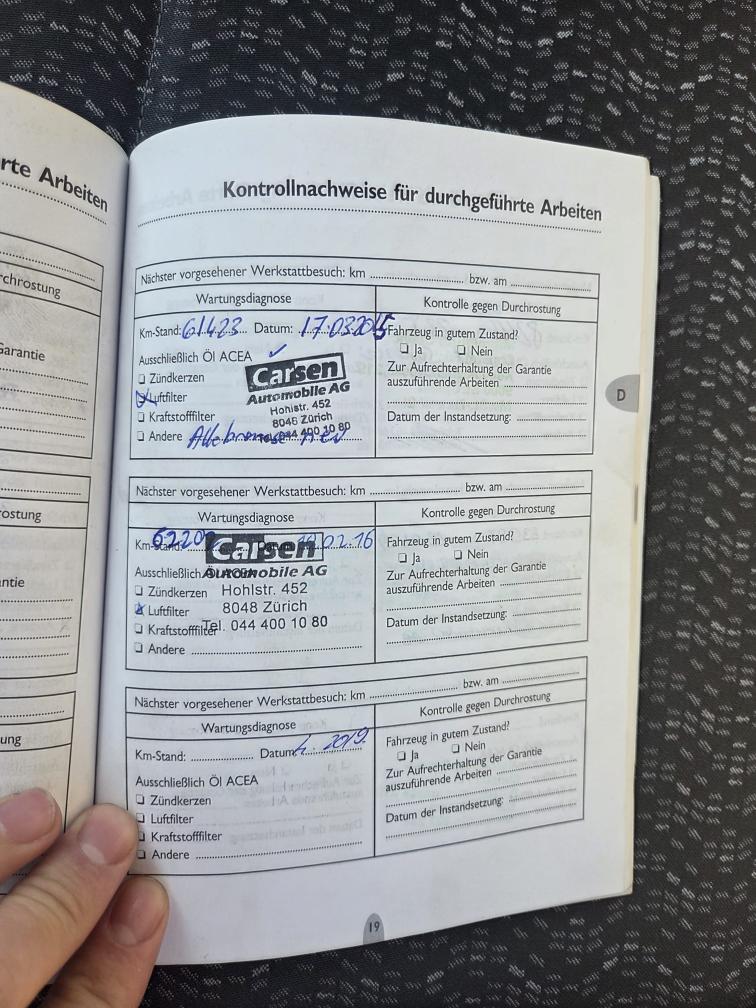 rte Arbeiten
rchrostung
Garantie
rostung
ntie
ung
Kontrollnachweise für durchgeführte Arbeiten
Nächster vorgesehener Werkstattbesuch: km ........ bzw. am ........
Wartungsdiagnose
Kontrolle gegen Durchrostung
Km-Stand: 61423 Datum: 17.03.2015
Ausschließlich Öl ACEA ✓
❑ Zündkerzen
Luftfilter
❑ Kraftstofffilter
❑ Andere
Carsen
Automobile AG
Hohlstr. 452
8048 Zürich
Tel. 044 400 10 80
Fahrzeug in gutem Zustand?
❑ Ja ❑ Nein
Zur Aufrechterhaltung der Garantie
auszuführende Arbeiten ........
Datum der Instandsetzung: ........
D
Nächster vorgesehener Werkstattbesuch: km ........ bzw. am ........
Wartungsdiagnose
Kontrolle gegen Durchrostung
Km-Stand: 02.16
Ausschließlich
❑ Zündkerzen
Luftfilter
❑ Kraftstofffilter
❑ Andere ........
Carsen
Automobile AG
Hohlstr. 452
8048 Zürich
Tel. 044 400 10 80
Fahrzeug in gutem Zustand?
❑ Ja ❑ Nein
Zur Aufrechterhaltung der Garantie
auszuführende Arbeiten ........
Datum der Instandsetzung: ........
Nächster vorgesehener Werkstattbesuch: km ........ bzw. am ........
Wartungsdiagnose
Kontrolle gegen Durchrostung
Km-Stand: ........ Datum: 2019
Ausschließlich Öl ACEA
❑ Zündkerzen
❑ Luftfilter
❑ Kraftstofffilter
❑ Andere ........
Fahrzeug in gutem Zustand?
❑ Ja ❑ Nein
Zur Aufrechterhaltung der Garantie
auszuführende Arbeiten ........
Datum der Instandsetzung: ........
19